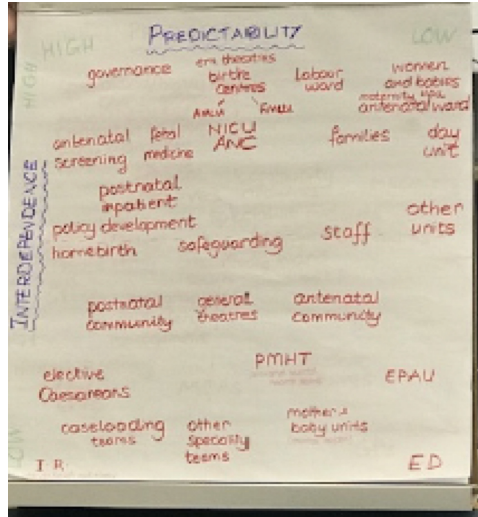 PREDICTABILITY
HIGH
LOW
HIGH
governance
birth
centres
Labour
ward
women
and babies
maternity
antenatal ward
AMLU
FMLU
antenatal
screening
fetal
medicine
NICU
ANC
families
day
unit
postnatal
inpatient
INTERDEPENDENCE
policy development
homebirth
safeguarding
staff
other
units
postnatal
community
general
theatres
antenatal
community
PMHT
EPAU
elective
Caesareans
caseloading
teams
other
speciality
teams
mother &
baby units
LOW
I.R.
ED